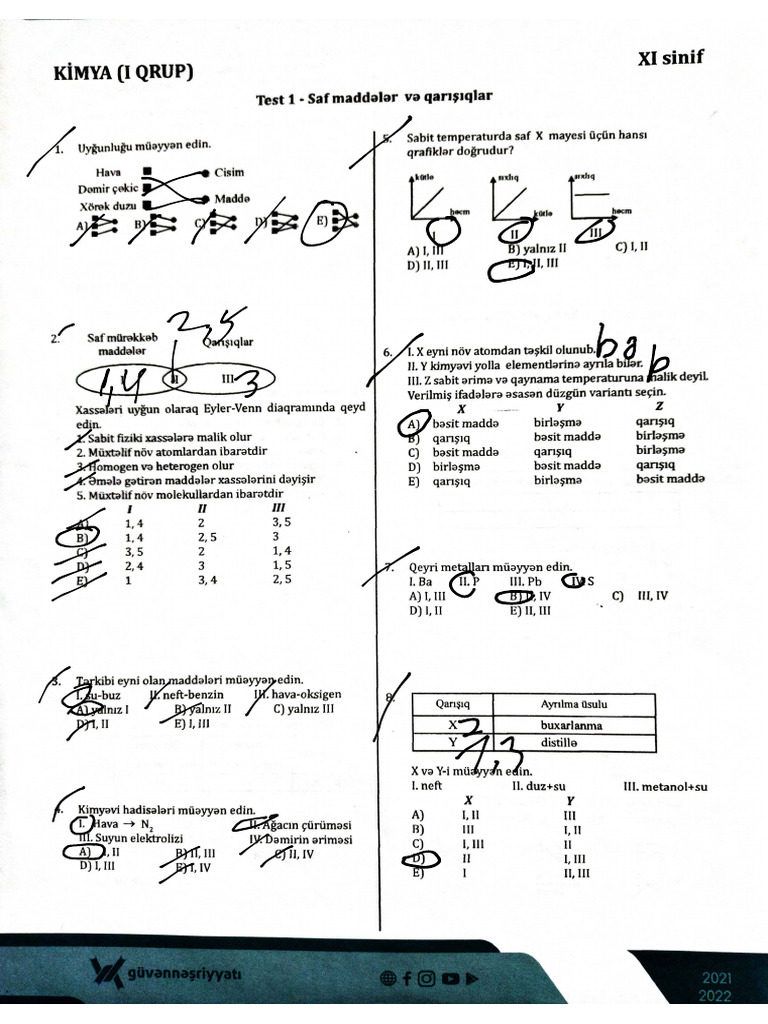 KİMYA (I QRUP)
XI sinif
Test 1 - Saf maddələr və qarışıqlar
1. Uyğunluğu müəyyən edin.
Hava
Cisim
Dəmir çəkic
Maddə
Xörək duzu
A) B) C) D) E)
2.
Saf mürəkkəb
maddələr
Qarışıqlar
2,5
1,4
II
III 3
Xassələri uyğun olaraq Eyler-Venn diaqramında qeyd
edin.
1. Sabit fiziki xassələrə malik olur
2. Müxtəlif növ atomlardan ibarətdir
3. Homogen və heterogen olur
4. Əmələ gətirən maddələr xassələrini dəyişir
5. Müxtəlif növ molekullardan ibarətdir
I II III
A) 1, 4 2 3, 5
B) 1, 4 2, 5 3
C) 3, 5 2 1, 4
D) 2, 4 3 1, 5
E) 1 3, 4 2, 5
3. Tərkibi eyni olan maddələri müəyyən edin.
I. su-buz II. neft-benzin III. hava-oksigen
A) yalnız I B) yalnız II C) yalnız III
D) I, II E) I, III
4. Kimyəvi hadisələri müəyyən edin.
I. Hava → N2 II. Ağacın çürüməsi
III. Suyun elektrolizi IV. Dəmirin əriməsi
A) I, II B) II, III C) II, IV
D) I, III E) I, IV
5. Sabit temperaturda saf X mayesi üçün hansı
qrafiklər doğrudur?
kütlə
həcm
I
sıxlıq
kütlə
II
sıxlıq
həcm
III
A) I, III B) yalnız II C) I, II
D) II, III E) I, II, III
6. I. X eyni növ atomdan təşkil olunub. b
II. Y kimyəvi yolla elementlərinə ayrıla bilər.
III. Z sabit ərimə və qaynama temperaturuna malik deyil.
Verilmiş ifadələrə əsasən düzgün variantı seçin.
X Y Z
A) bəsit maddə birləşmə qarışıq
B) qarışıq bəsit maddə birləşmə
C) bəsit maddə qarışıq birləşmə
D) birləşmə bəsit maddə qarışıq
E) qarışıq birləşmə bəsit maddə
7. Qeyri metalları müəyyən edin.
I. Ba II. P III. Pb IV. S
A) I, III B) II, IV C) III, IV
D) I, II E) II, III
8.
Qarışıq Ayrılma üsulu
X 2 buxarlanma
Y 1,3 distillə
X və Y-i müəyyən edin.
I. neft II. duz+su III. metanol+su
X Y
A) I, II III
B) III I, II
C) I, III II
D) II I, III
E) I II, III
güvənnəşriyyatı
2021
2022